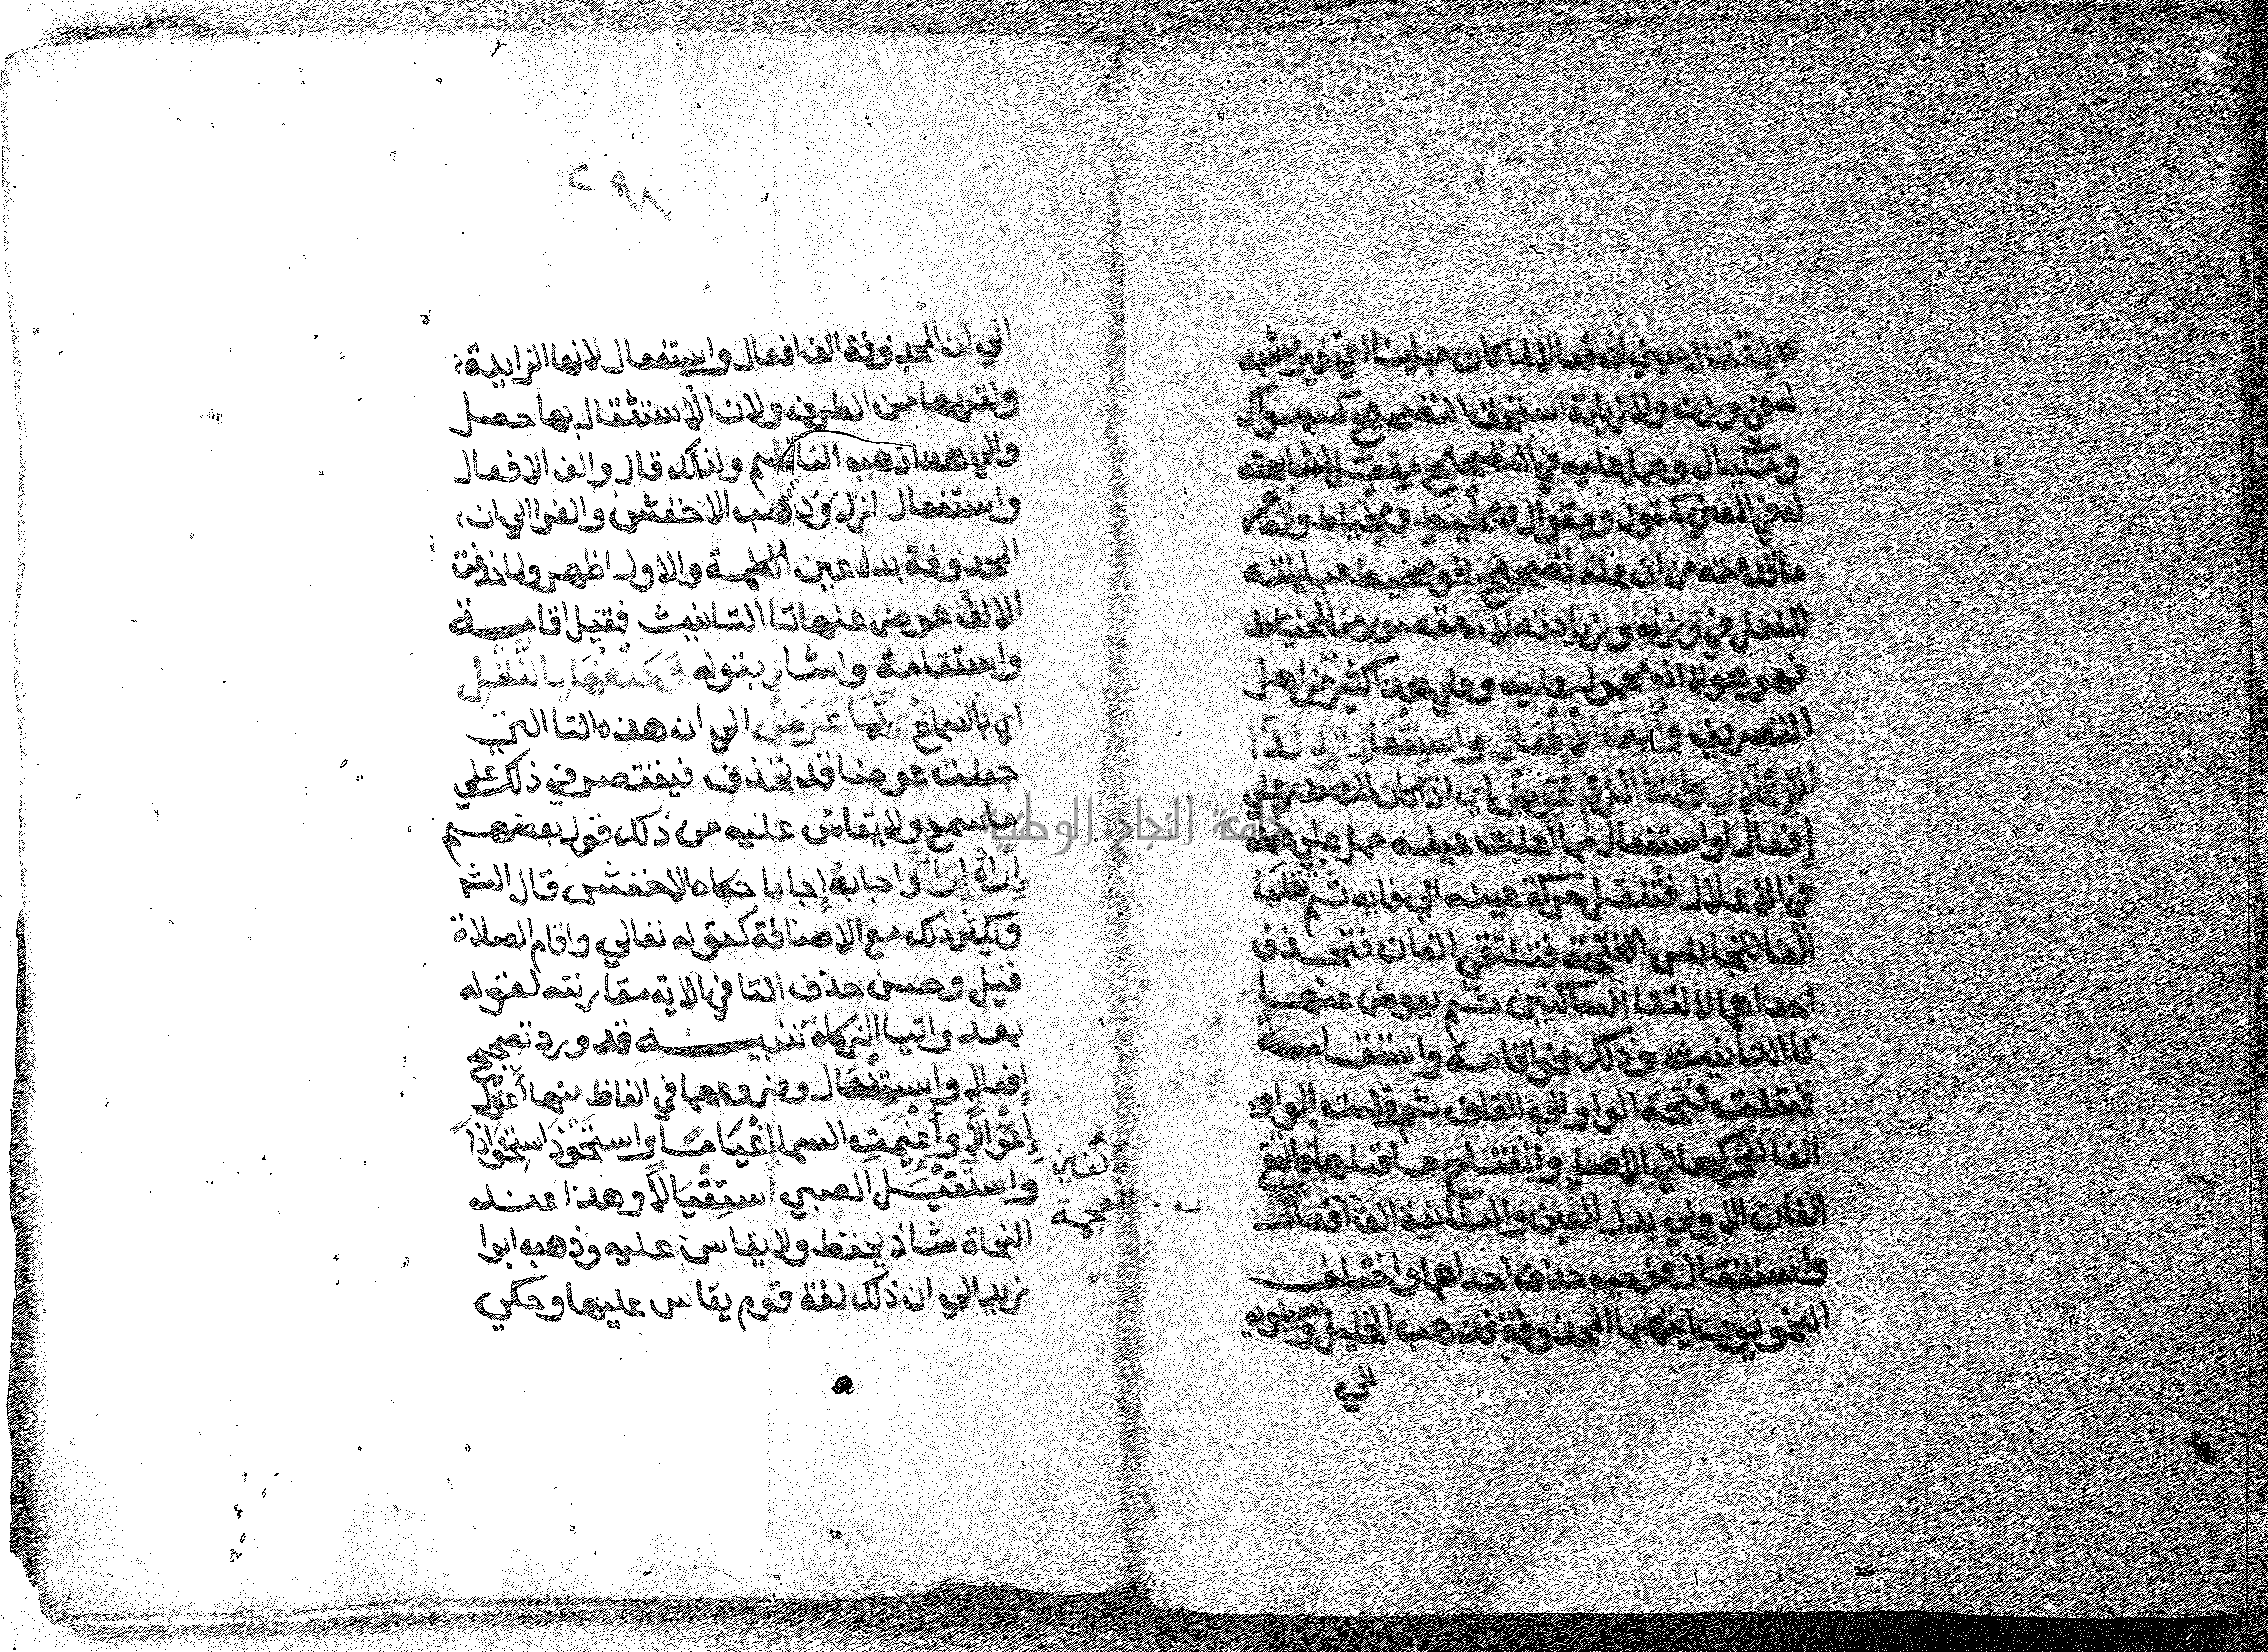 كالمِفْعَال يعني ان فعالا لما كان مباينا اي غير مشبه
له في وزن ولا زيادة استحق التصحيح كمسواك
ومكيال وحمل عليه في التصحيح مِفعَل لمشابهته
له في المعني كمقول ومقوال ومِخْيَطٍ ومِخْيَاط والظاهر
ما قدمته من ان علة تصحيح نحو مخيط مباينته
للفعل في وزنه وزيادته لانه مقصور من المخياط
فهو هو لا انه محمول عليه وعلي هذا كثير من اهل
التصريف وَأَلِفَ الْإِفْعَالِ واسْتِفْعَالِ ازل لذَا
الإِعْلَالِ والتا الزَم عَوَضْ اي اذا كان المصدر علي
إِفعال او استفعال مما اعلت عينه حمل علي فعله
في الاعلال فتُنقل حركة عينه الي فايه ثم تقلب
الفا لتجانس الفتحة فتلتقي الفان فتحذف
احداهما لالتقا الساكنين ثم يعوض عنها
تا التانيث وذلك نحو اقامة واستقامة
فنقلت فتحة الواو الي القاف ثم قلبت الواو
الفا لتحركها في الاصل وانفتاح ما قبلها فالتقي
الفان الاولي بدل العين والثانية الف افعال
واستفعال فوجب حذف احداهما واختلف
النحويون ايتهما المحذوفة فذهب الخليل وسيبويه
الي
٢٩٨
الي ان المحذوفة الف افعال واستفعال لانها الزايدة
ولقربها من الطرف ولان الاستثقال بها حصل
والي هذا ذهب الناظم ولذلك قال والف الافعال
واستفعال ازل وذهب الاخفش والفرا الي ان
المحذوفة بدل عين الكلمة والاول اظهر ولما حذفت
الالف عوض عنها تا التانيث فقيل اقامة
واستقامة واشار بقوله وَحَذْفُهَا بِالنَّقْلِ
اي بالسماع رُبَّمَا عَرَضْ الي ان هذه التا التي
جعلت عوضا قد تحذف فيقتصر في ذلك علي
ما سمع ولا يقاس عليه من ذلك قول بعضهم
إراه إراءً واجابهُ إجابا حكاه الاخفش قال الش
ويكثر ذلك مع الاضافة كقوله تعالي واقام الصلاة
قيل وحسن حذف التا في الاية مقارنته لقوله
بعد وايتا الزكاة تنبيه قد ورد تصحيح
إفعال واستِفْعَال وفروعهما في الفاظ منها أَعْوَل
إِعْوَالًا وأَغْيَمَتِ السما إِغْيَامًا واستَحْوَذَ اسْتِحْوَاذًا
بالغين
المعجمة
واستَغْيَل الصبي استِغْيَالًا وهذا عند
النحاة شاذ يحفظ ولا يقاس عليه وذهب ابوا
زيد الي ان ذلك لغة قوم يقاس عليها وحكي
جامعة النجاح الوطنية